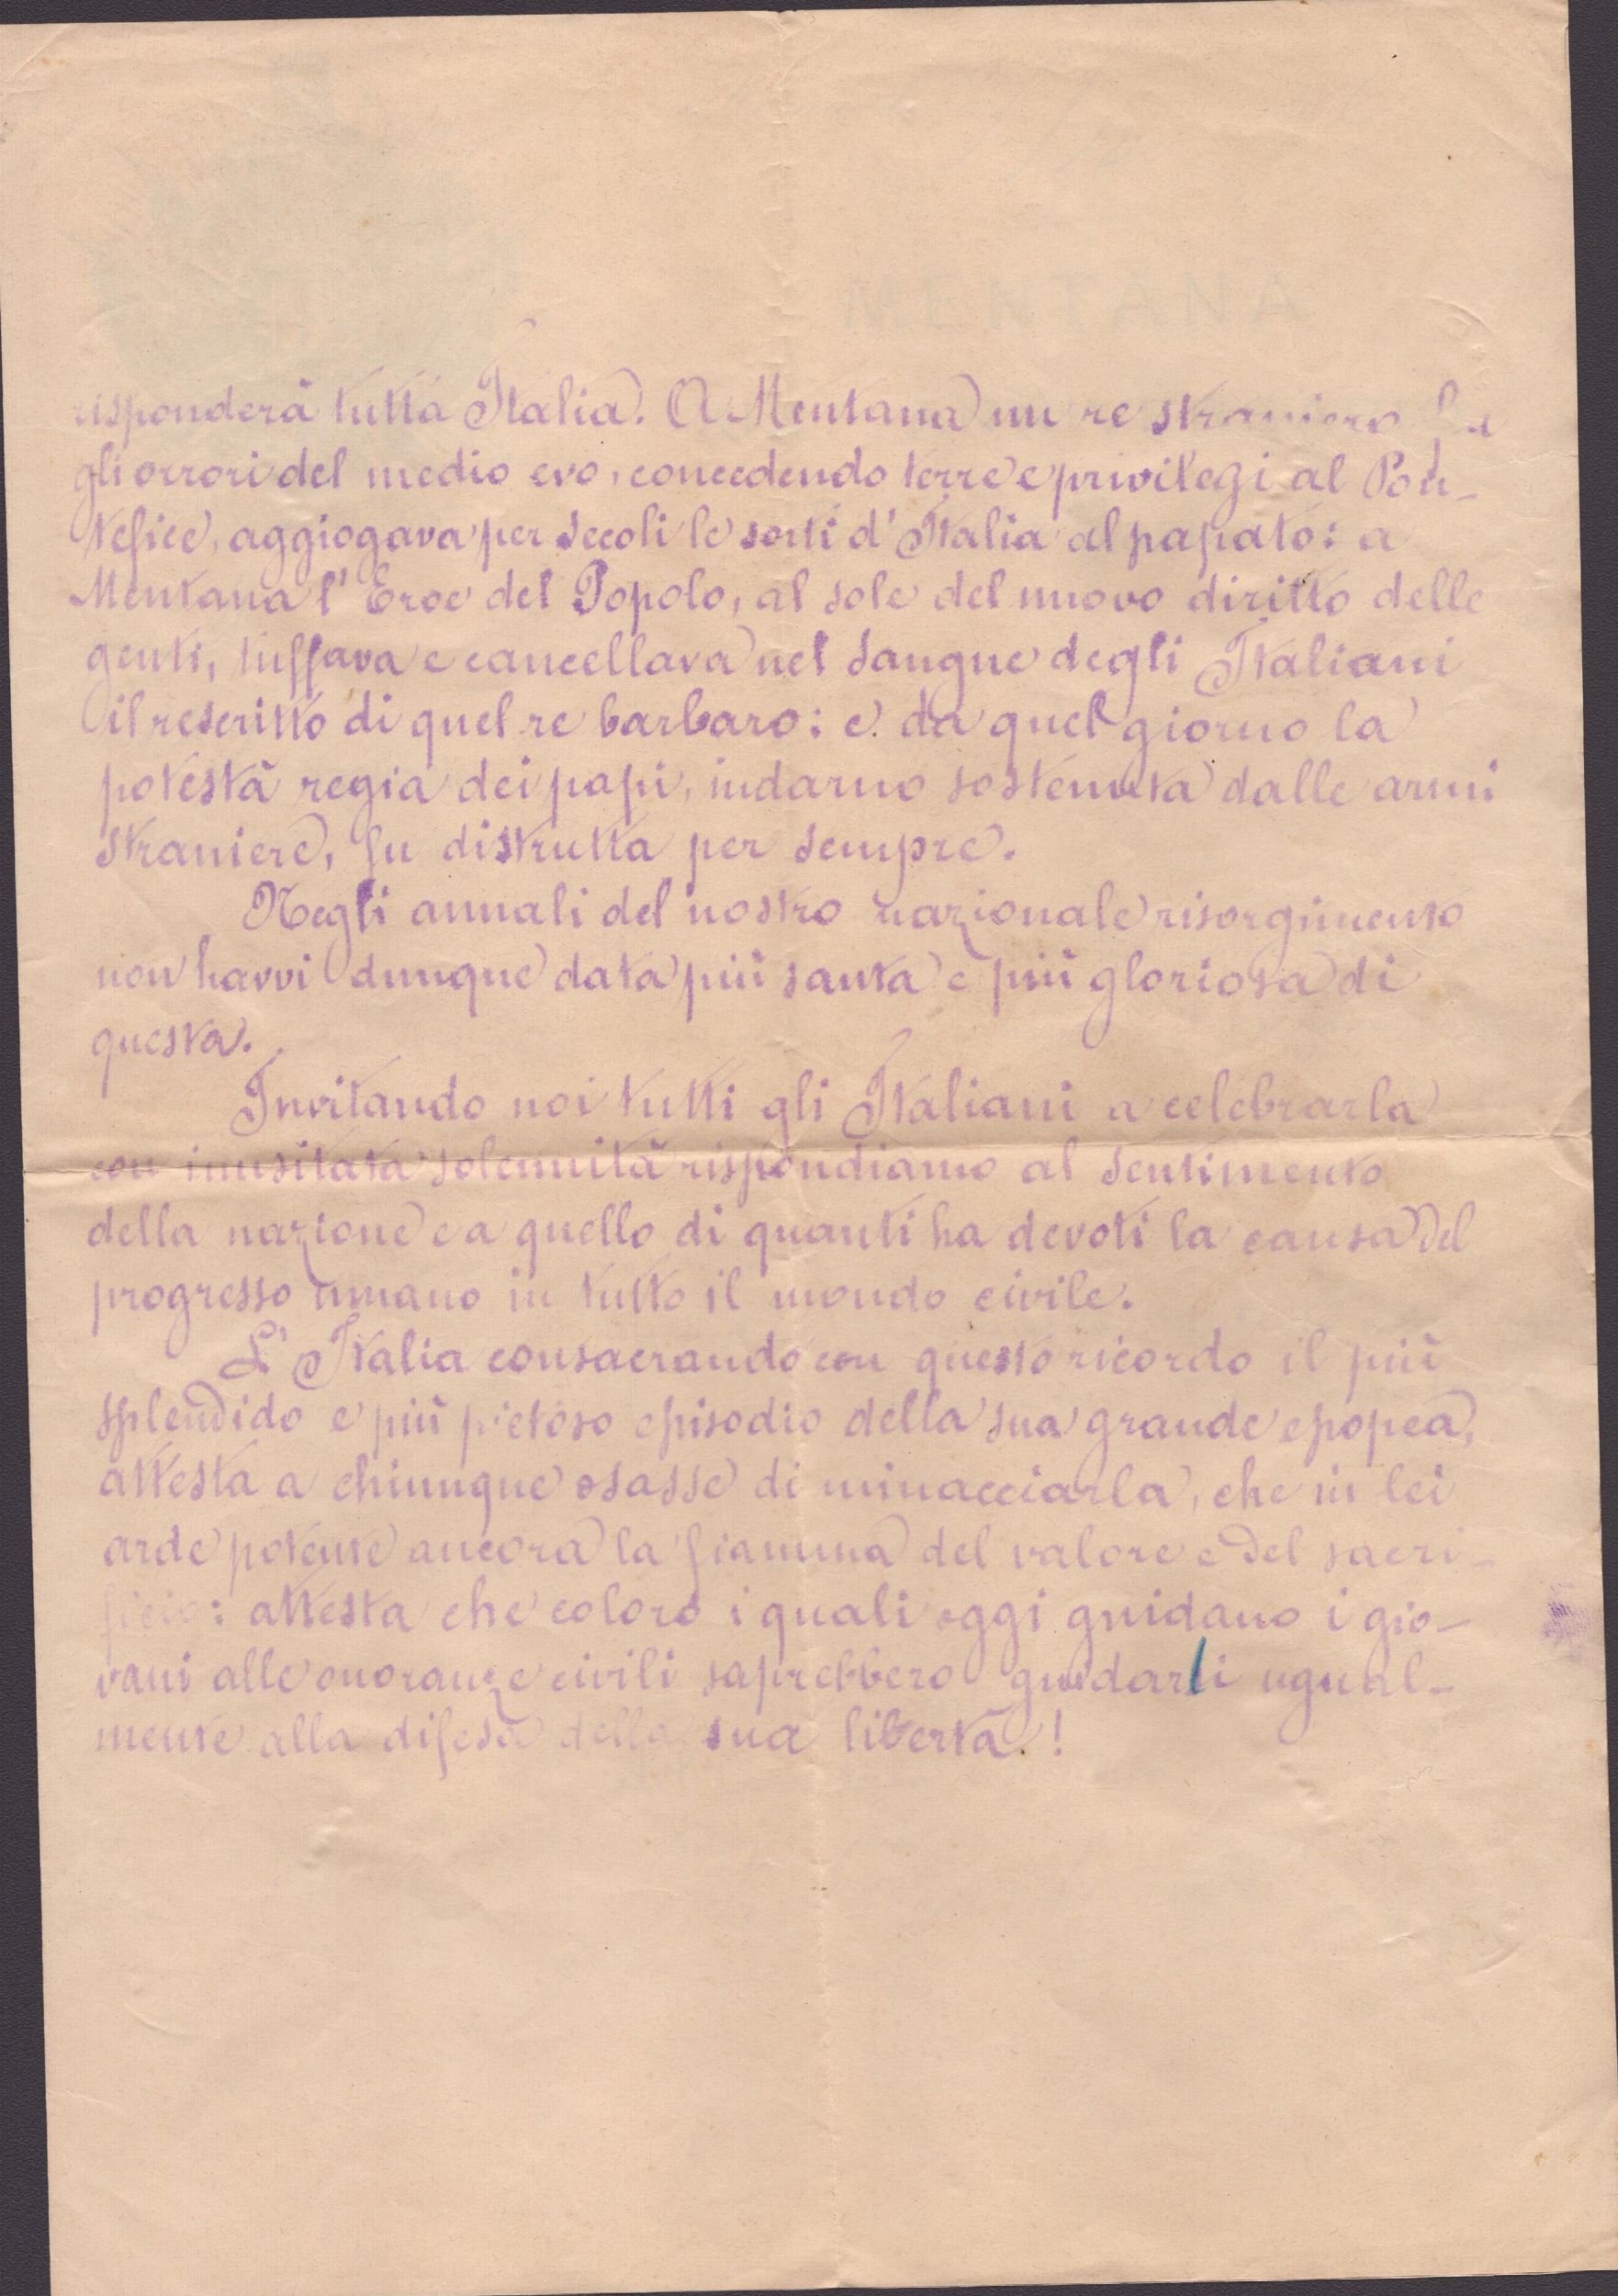 risponderà tutta Italia. A Mentana un re straniero fra
gli orrori del medio evo, concedendo terre e privilegi al Pon-
tefice, aggiogava per secoli le sorti d'Italia al papato: a
Mentana l'Eroe del Popolo, al sole del nuovo diritto delle
genti, tuffava e cancellava nel sangue degli Italiani
il rescritto di quel re barbaro: e da quel giorno la
potestà regia dei papi, indarno sostenuta dalle armi
straniere, fu distrutta per sempre.
Negli annali del nostro nazionale risorgimento
non havvi dunque data più santa e più gloriosa di
questa.
Invitando noi tutti gli Italiani a celebrarla
con inusitata solennità rispondiamo al sentimento
della nazione e a quello di quanti ha devoti la causa del
progresso umano in tutto il mondo civile.
L'Italia consacrando con questo ricordo il più
splendido e più pietoso episodio della sua grande epopea,
attesta a chiunque osasse di minacciarla, che in lei
arde potente ancora la fiamma del valore e del sacri-
ficio: attesta che coloro i quali oggi guidano i gio-
vani alle onoranze civili saprebbero guidarli ugual-
mente alla difesa della sua libertà!